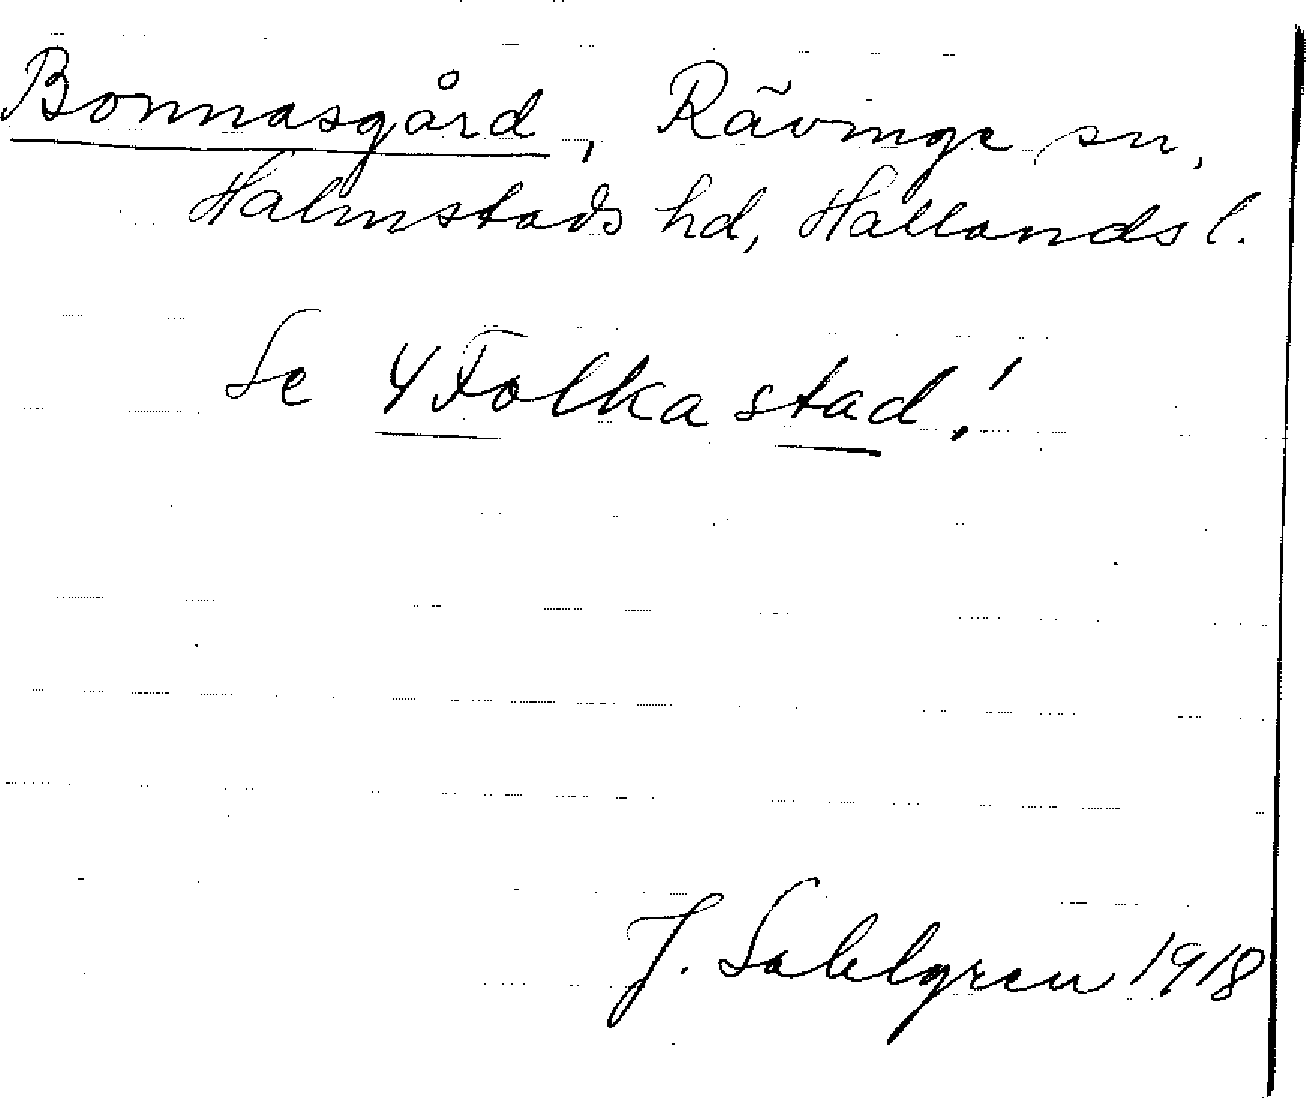 Bonnasgård, Rävinge sn,
Halmstads hd, Hallands l.
Se 4 Folkastad!
J. Sahlgren 1918